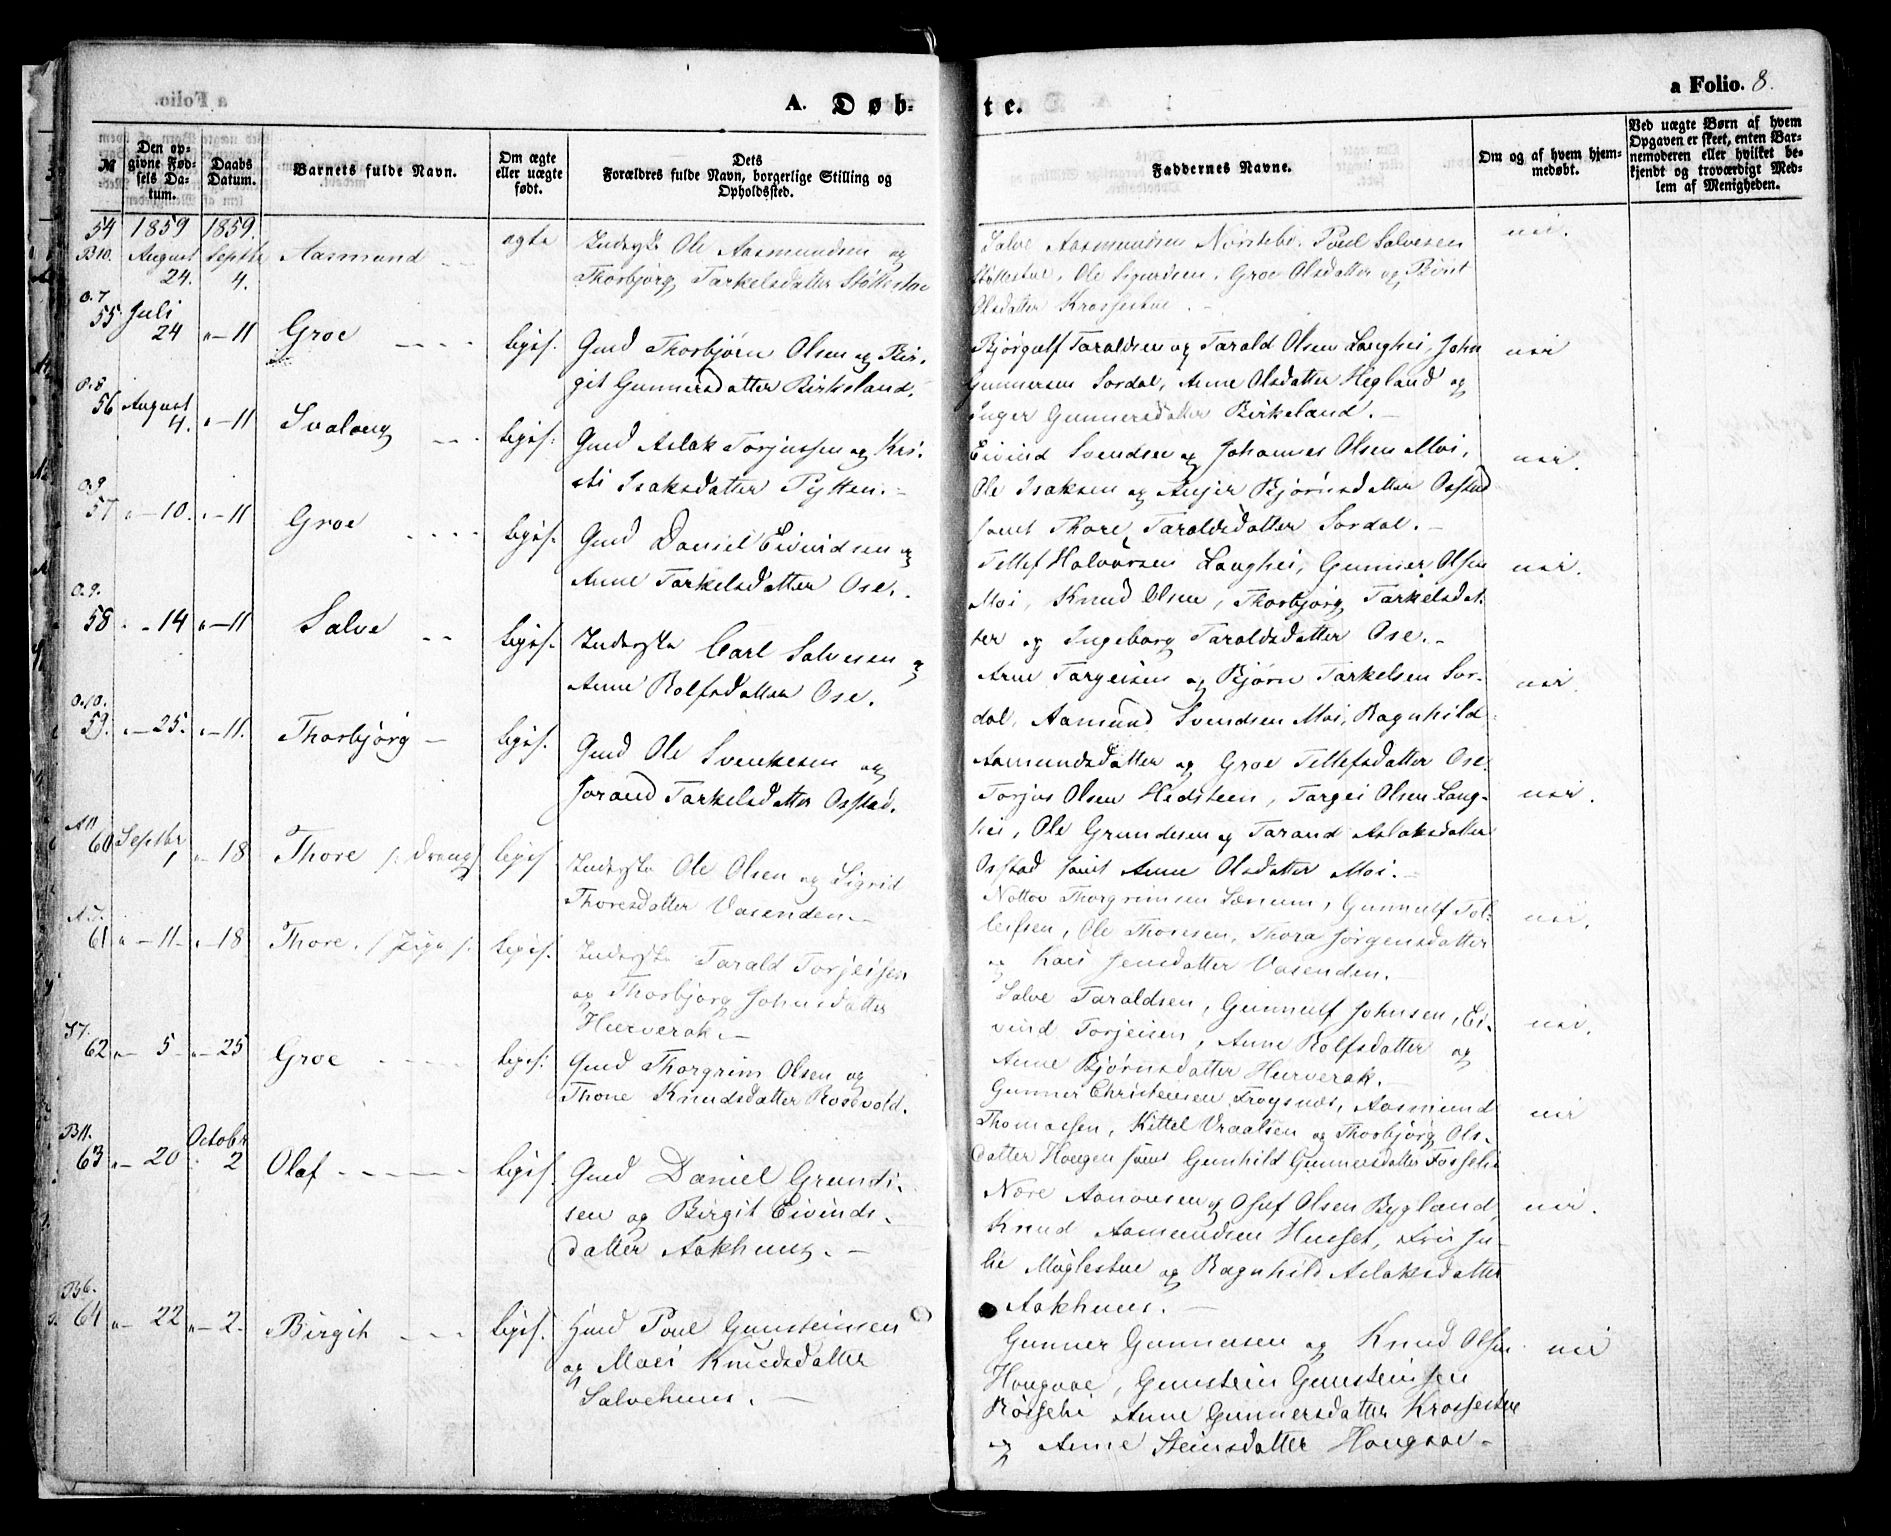 a Folio. 8.
A. Døb-te.
№
Den op-
givne Fød-
sels Da-
tum.
Daabs
Datum.
Barnets fulde Navn.
Om ægte
eller uægte
født.
Dets
Forældres fulde Navn, borgerlige Stilling og
Opholdssted.
Faddernes Navne.
Om og af hvem hjem-
medøbt.
Ved uægte Børn af hvem
Opgaven er skeet, enten Bar-
nemoderen eller hvilket be-
kjendt og troværdigt Med-
lem af Menigheden.
54 1859 1859.
B10. August 24. Septbr 4. Aasmund ægte
Inderste Ole Aasmundsen og
Thorbjørg Tarkelsdatter Støllestue
Salve Aasmundsen Nørstebø, Poul Salvesen
Støllestue, Ole Sigurdsen, Groe Olsdatter og Birit
Olsdatter Krossestue. nei.
O.7
55. Juli 24 "-11 Groe liges.
Gmd Thorbjørn Olsen og Bir-
git Gunnersdatter Birkeland.
Bjørgulf Taraldsen og Tarald Olsen Langhei, John
Gunnersen Sordal, Anne Olsdatter Hegland og
Inger Gunnersdatter Birkeland. nei
O.8
56 August 4. "-11 Svalaug ligis.
Gmd Aslak Torjussen og Kri-
sti Isaksdatter Pytten.
Eivind Svendsen og Johannes Olsen Moi,
Ole Isaksen og Anjer Bjørnsdatter Osstad
samt Thore Taraldsdatter Sordal. nei.
O.9
57 "-10. "-11 Groe ligis.
Gmd Daniel Eivindsen og
Anne Tarkelsdatter Ose.
Tellef Halvorsen Langhei, Gunner Olsen
Moi, Knud Olsen, Thorbjørg Tarkelsdat-
ter og Ingeborg Taraldsdatter Ose. nei.
O.9.
58 "-14 "-11 Salve ligis.
Inderste Carl Salvesen og
Anne Rolfsdatter Ose.
Arne Targeisen og Bjørn Tarkelsen Sor-
dal, Aamund Svendsen Moi, Ragnhild
Asmundsdatter og Groe Tellefsdatter Ose. nei.
O.10.
59. "-25. "-11. Thorbjørg ligis.
Gmd Ole Svenkesen og
Jorand Tarkelsdatter Osstad.
Torjus Olsen Hedsteen, Targei Olsen Lang-
hei, Ole Grundesen og Tarand Aslaksdatter
Osstad samt Anne Olsdatter Moi. nei.
A11
60 Septbr 1 "-18 Thore /: Dreng :/ ligis
Inderste Ole Olsen og Sigrid
Thoresdatter Vasenden.
Nottov Thorgrimsen Sænum, Gunnulf Tol-
leifsen, Ole Thoresen, Thora Jørgensdatter
og Kari Jensdatter Vasenden. nei.
61 "-11- "-18 Thore. /: Pige :/ ligis.
Inderste Tarald Torjeisen
og Thorbjørg Johnsdatter
Hurverak.
Salve Taraldsen, Gunnulf Johnsen, Ei-
vind Torjeisen, Anne Rolfsdatter og
Anne Bjørnsdatter Hurverak. nei.
62 "- 5- "-25 Groe ligis:
Gmd Thorgrim Olsen og
Thone Knudsdatter Rosevold.
Gunner Christensen Frøysnæs, Aasmund
Thomassen, Kittel Vraalsen og Thorbjørg Ols-
datter Hougen samt Gunhild Gunnersdatter nei
B11.
63 "- 20 Octobr 2 Olaf ligis.
Gmd Daniel Grundi-
sen og Birgit Eivinds-
datter Aakhuus.
Nore Aanonsen og Osuf Olsen Bygland,
Knud Aasmundsen Huset, Ju-
lie Møglestue og Ragnhild Aslaksdatter
Aakhuus. nei.
B6.
64 "- 22 "-2. Birgit ligis.
Hmd Poul Gunsteinsen
og Maei Knudsdatter
Salvehuus.
Gunner Gunnersen og Knud Olsen
Hougaae, Gunstein Gunsteinsen
Røisheie Anne Gunnersdatter Krossestue
og Anne Steinsdatter Hougaae. nei